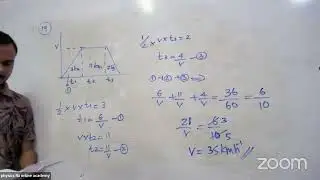 19
V
3km
11km
2km
t1 t2 t3
①
1/2 × v × t1 = 3
t1 = 6/v – ①
v × t2 = 11
t2 = 11/v – ②
1/2 × v × t3 = 2
t3 = 4/v – ③
① + ② + ③ =
6/v + 11/v + 4/v = 36/60 = 6/10
21/v = 6 3/10 5
V = 35 kmh⁻¹
zoom
physics flix online academy